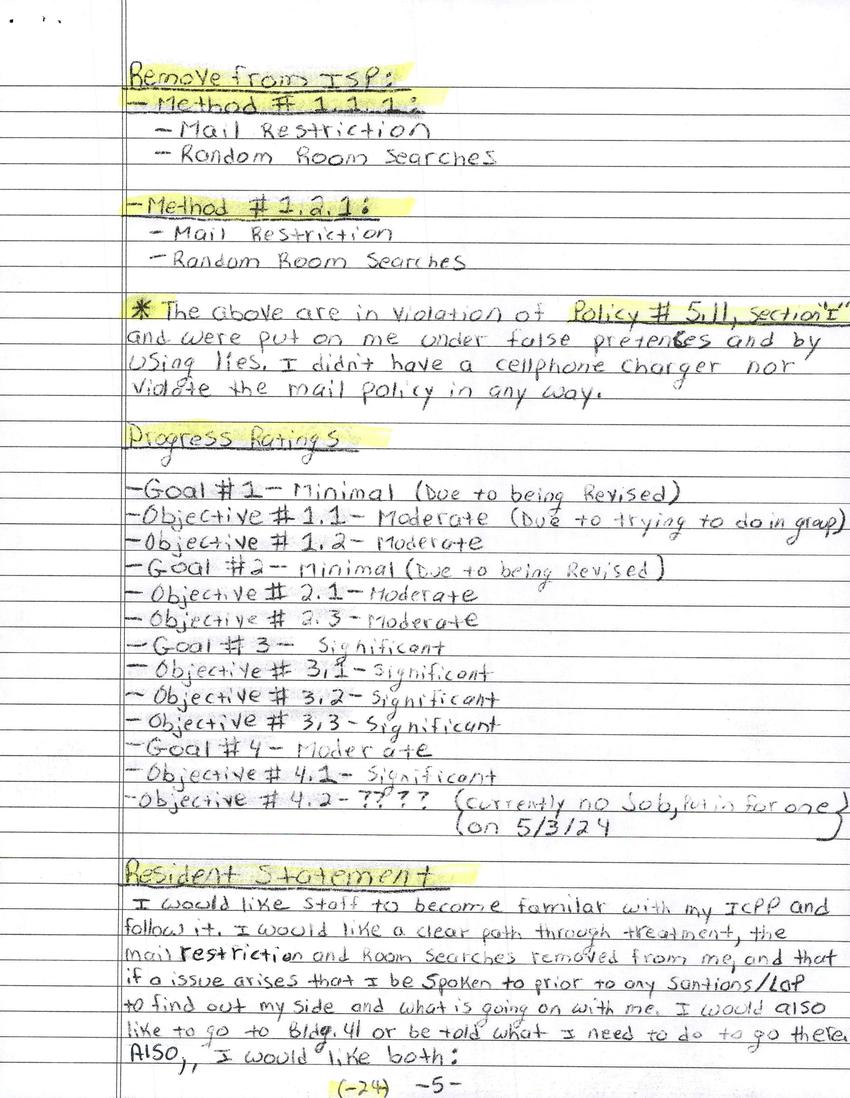 Remove from ISP:
- Method # 1.1.1:
- Mail Restriction
- Random Room Searches
- Method # 1.2.1:
- Mail Restriction
- Random Room Searches
* The above are in violation of Policy # 5.11, section "I"
and were put on me under false pretenses and by
using lies. I didn't have a cellphone charger nor
violate the mail policy in any way.
Progress Ratings
- Goal # 1 - Minimal (Due to being Revised)
- Objective # 1.1 - Moderate (Due to trying to do in group)
- Objective # 1.2 - Moderate
- Goal # 2 - Minimal (Due to being Revised)
- Objective # 2.1 - Moderate
- Objective # 2.3 - Moderate
- Goal # 3 - Significant
- Objective # 3.1 - Significant
- Objective # 3.2 - Significant
- Objective # 3.3 - Significant
- Goal # 4 - Moderate
- Objective # 4.1 - Significant
- Objective # 4.2 - ???? (currently no Job, Put in for one)
(on 5/3/24
Resident Statement
I would like staff to become familar with my ICPP and
follow it. I would like a clear path through treatment, the
mail restriction and Room Searches removed from me, and that
if a issue arises that I be spoken to prior to any Santions/LOP
to find out my side and what is going on with me. I would also
like to go to Bldg. 41 or be told what I need to do to go there.
Also,, I would like both:
(-24) -5-